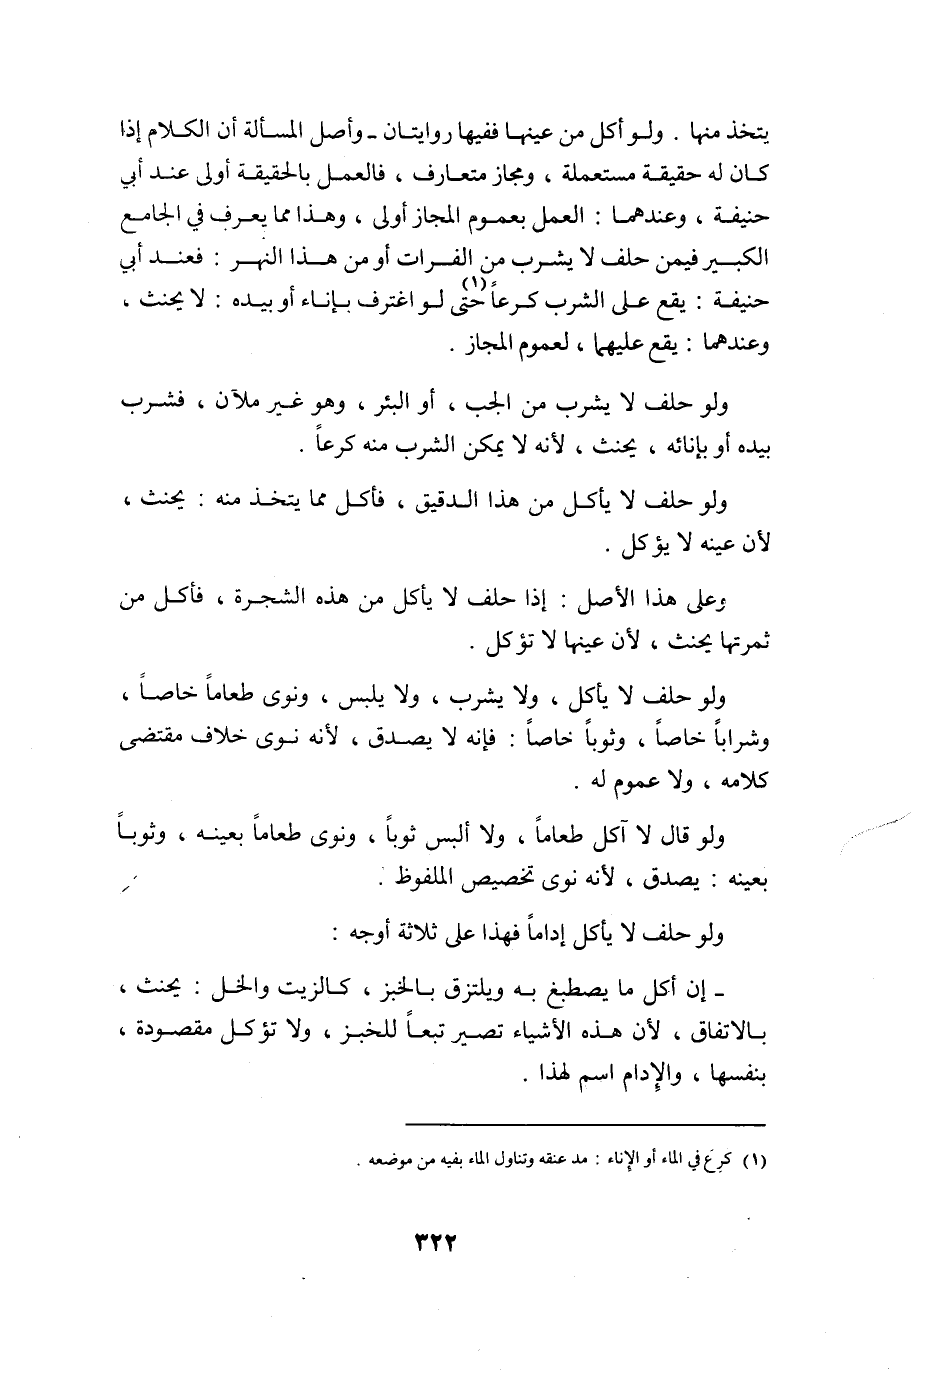 يتخذ منها . ولو أكل من عينها ففيها روايتان ـ وأصل المسألة أن الكلام إذا
كان له حقيقة مستعملة ، ومجاز متعارف ، فالعمل بالحقيقة أولى عند أبي
حنيفة ، وعندهما : العمل بعموم المجاز أولى ، وهذا مما يعرف في الجامع
الكبير فيمن حلف لا يشرب من الفرات أو من هذا النهر : فعند أبي
حنيفة : يقع على الشرب كرعاً(١) حتى لو اغترف بإناء أو بيده : لا يحنث ،
وعندهما : يقع عليهما ، لعموم المجاز .
ولو حلف لا يشرب من الجب ، أو البئر ، وهو غير ملآن ، فشرب
بيده أو بإنائه ، يحنث ، لأنه لا يمكن الشرب منه كرعاً .
ولو حلف لا يأكل من هذا الدقيق ، فأكل مما يتخذ منه : يحنث ،
لأن عينه لا يؤكل .
وعلى هذا الأصل : إذا حلف لا يأكل من هذه الشجرة ، فأكل من
ثمرتها يحنث ، لأن عينها لا تؤكل .
ولو حلف لا يأكل ، ولا يشرب ، ولا يلبس ، ونوى طعاماً خاصاً ،
وشراباً خاصاً ، وثوباً خاصاً : فإنه لا يصدق ، لأنه نوى خلاف مقتضى
كلامه ، ولا عموم له .
ولو قال لا آكل طعاماً ، ولا ألبس ثوباً ، ونوى طعاماً بعينه ، وثوباً
بعينه : يصدق ، لأنه نوى تخصيص الملفوظ .
ولو حلف لا يأكل إداماً فهذا على ثلاثة أوجه :
ـ إن أكل ما يصطبغ به ويلتزق بالخبز ، كالزيت والخل : يحنث ،
بالاتفاق ، لأن هذه الأشياء تصير تبعاً للخبز ، ولا تؤكل مقصودة ،
بنفسها ، والإدام اسم لهذا .
(١) كرَع في الماء أو الإناء : مد عنقه وتناول الماء بفيه من موضعه .
٣٢٢